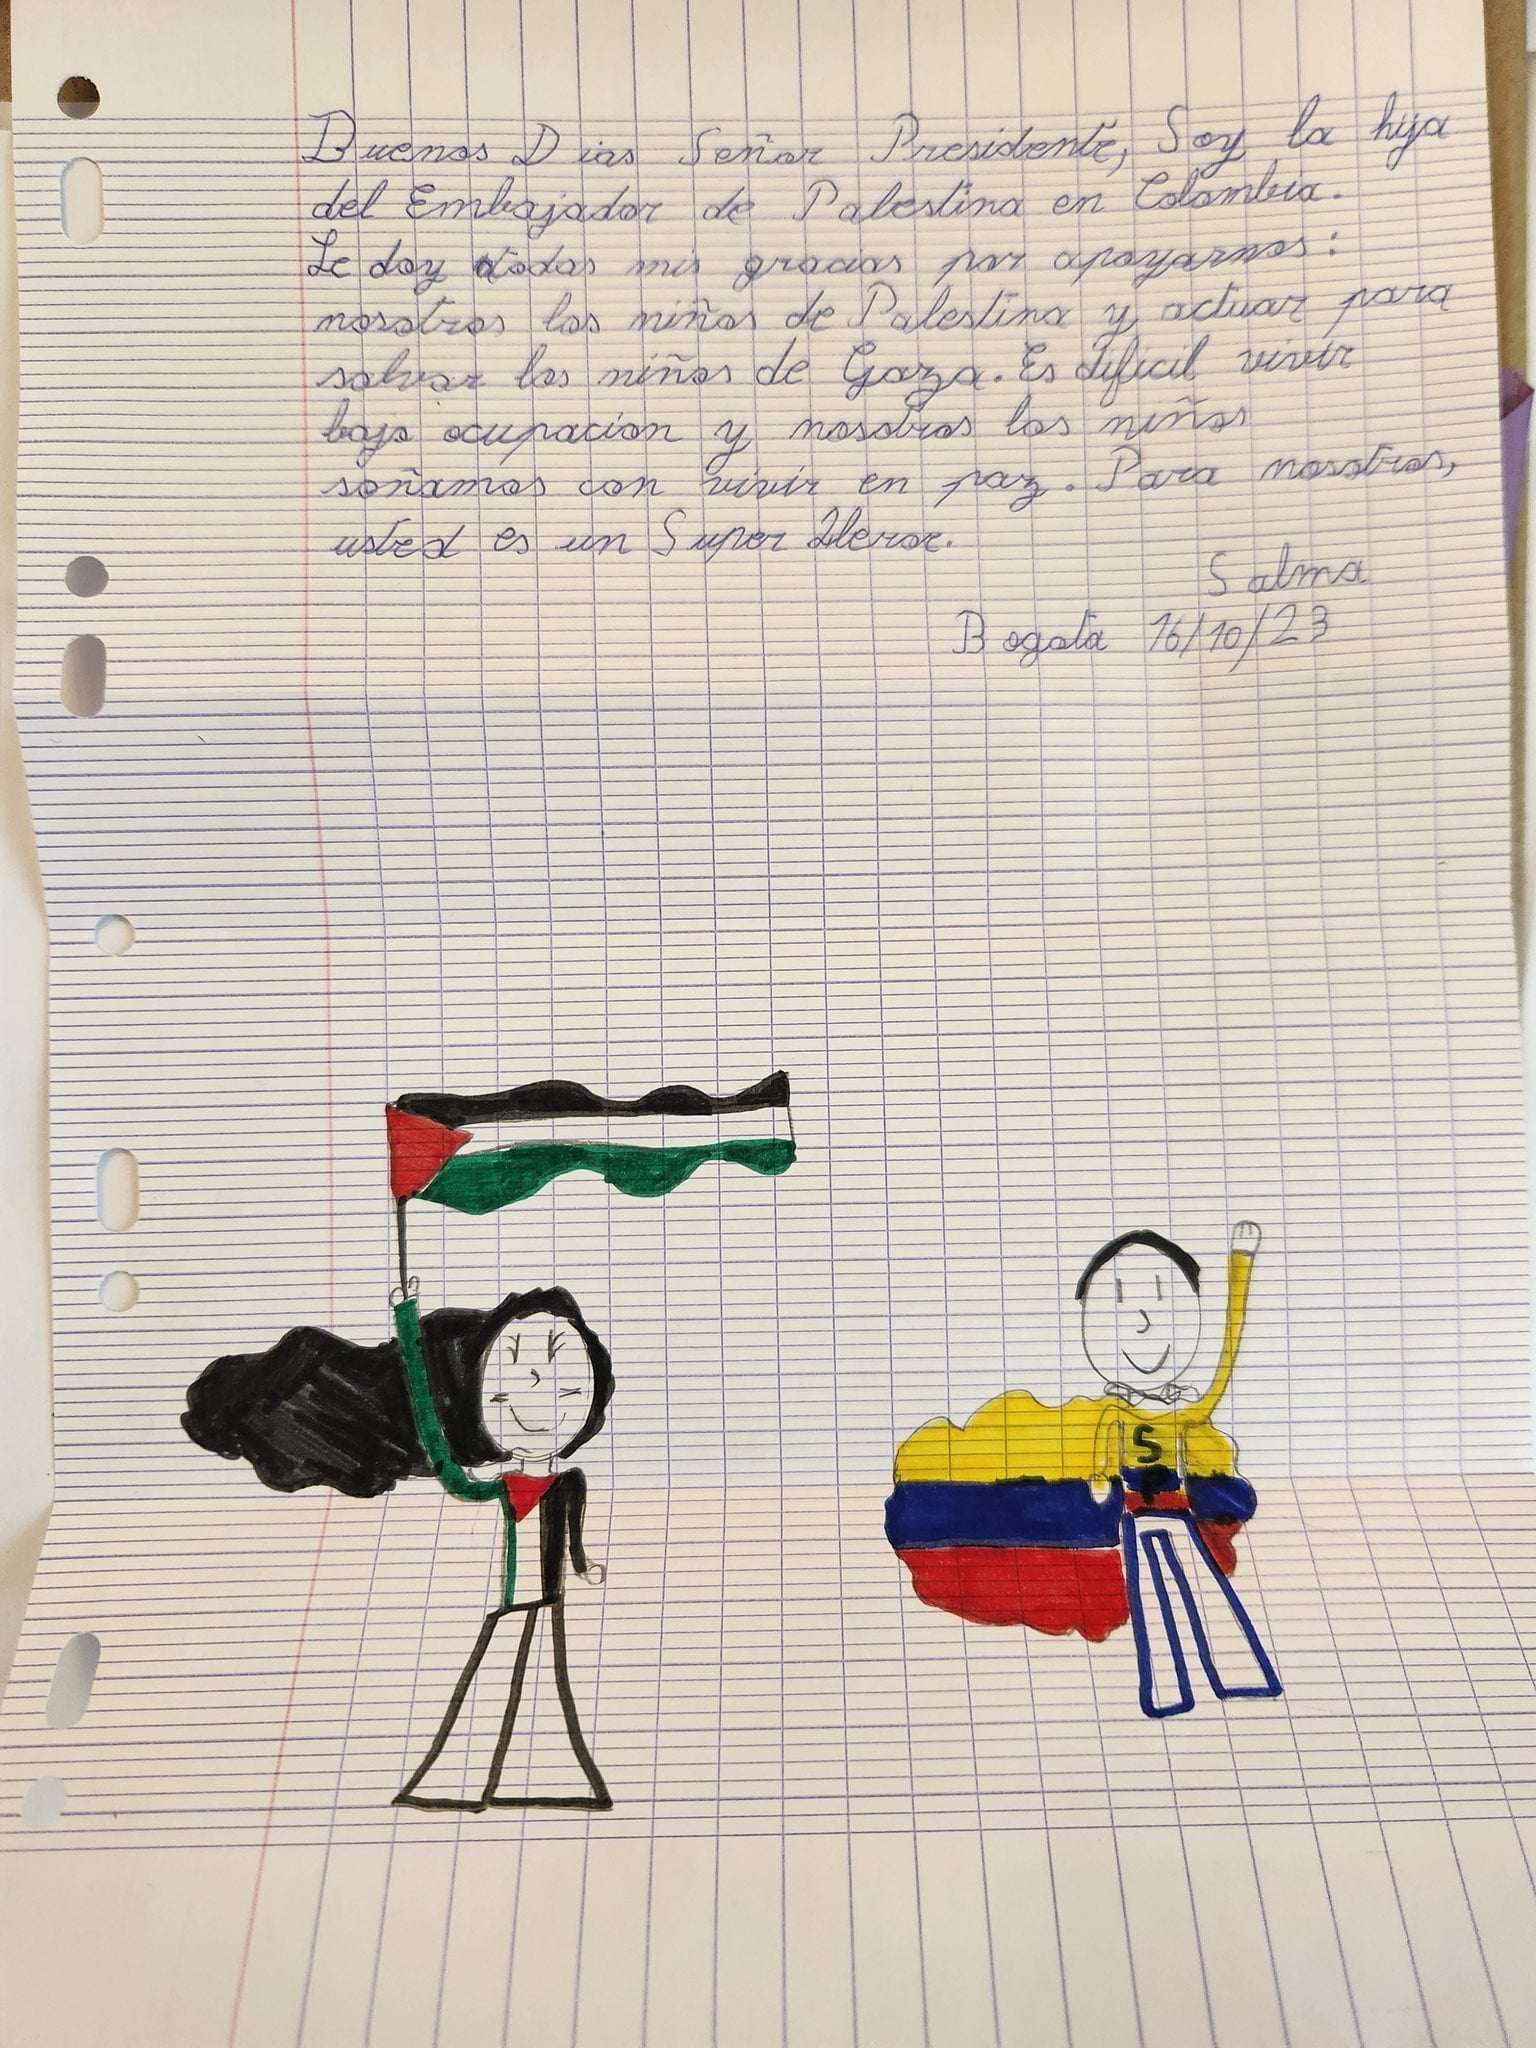 Buenos Dias Señor Presidente, Soy la hija
del Embajador de Palestina en Colombia.
Le doy todas mis gracias por apoyarnos:
nosotros los niños de Palestina y actuar para
salvar los niños de Gaza. Es dificil vivir
bajo ocupacion y nosotros los niños
soñamos con vivir en paz. Para nosotros,
usted es un Super Heroe.
Salma
Bogota 16/10/23
S